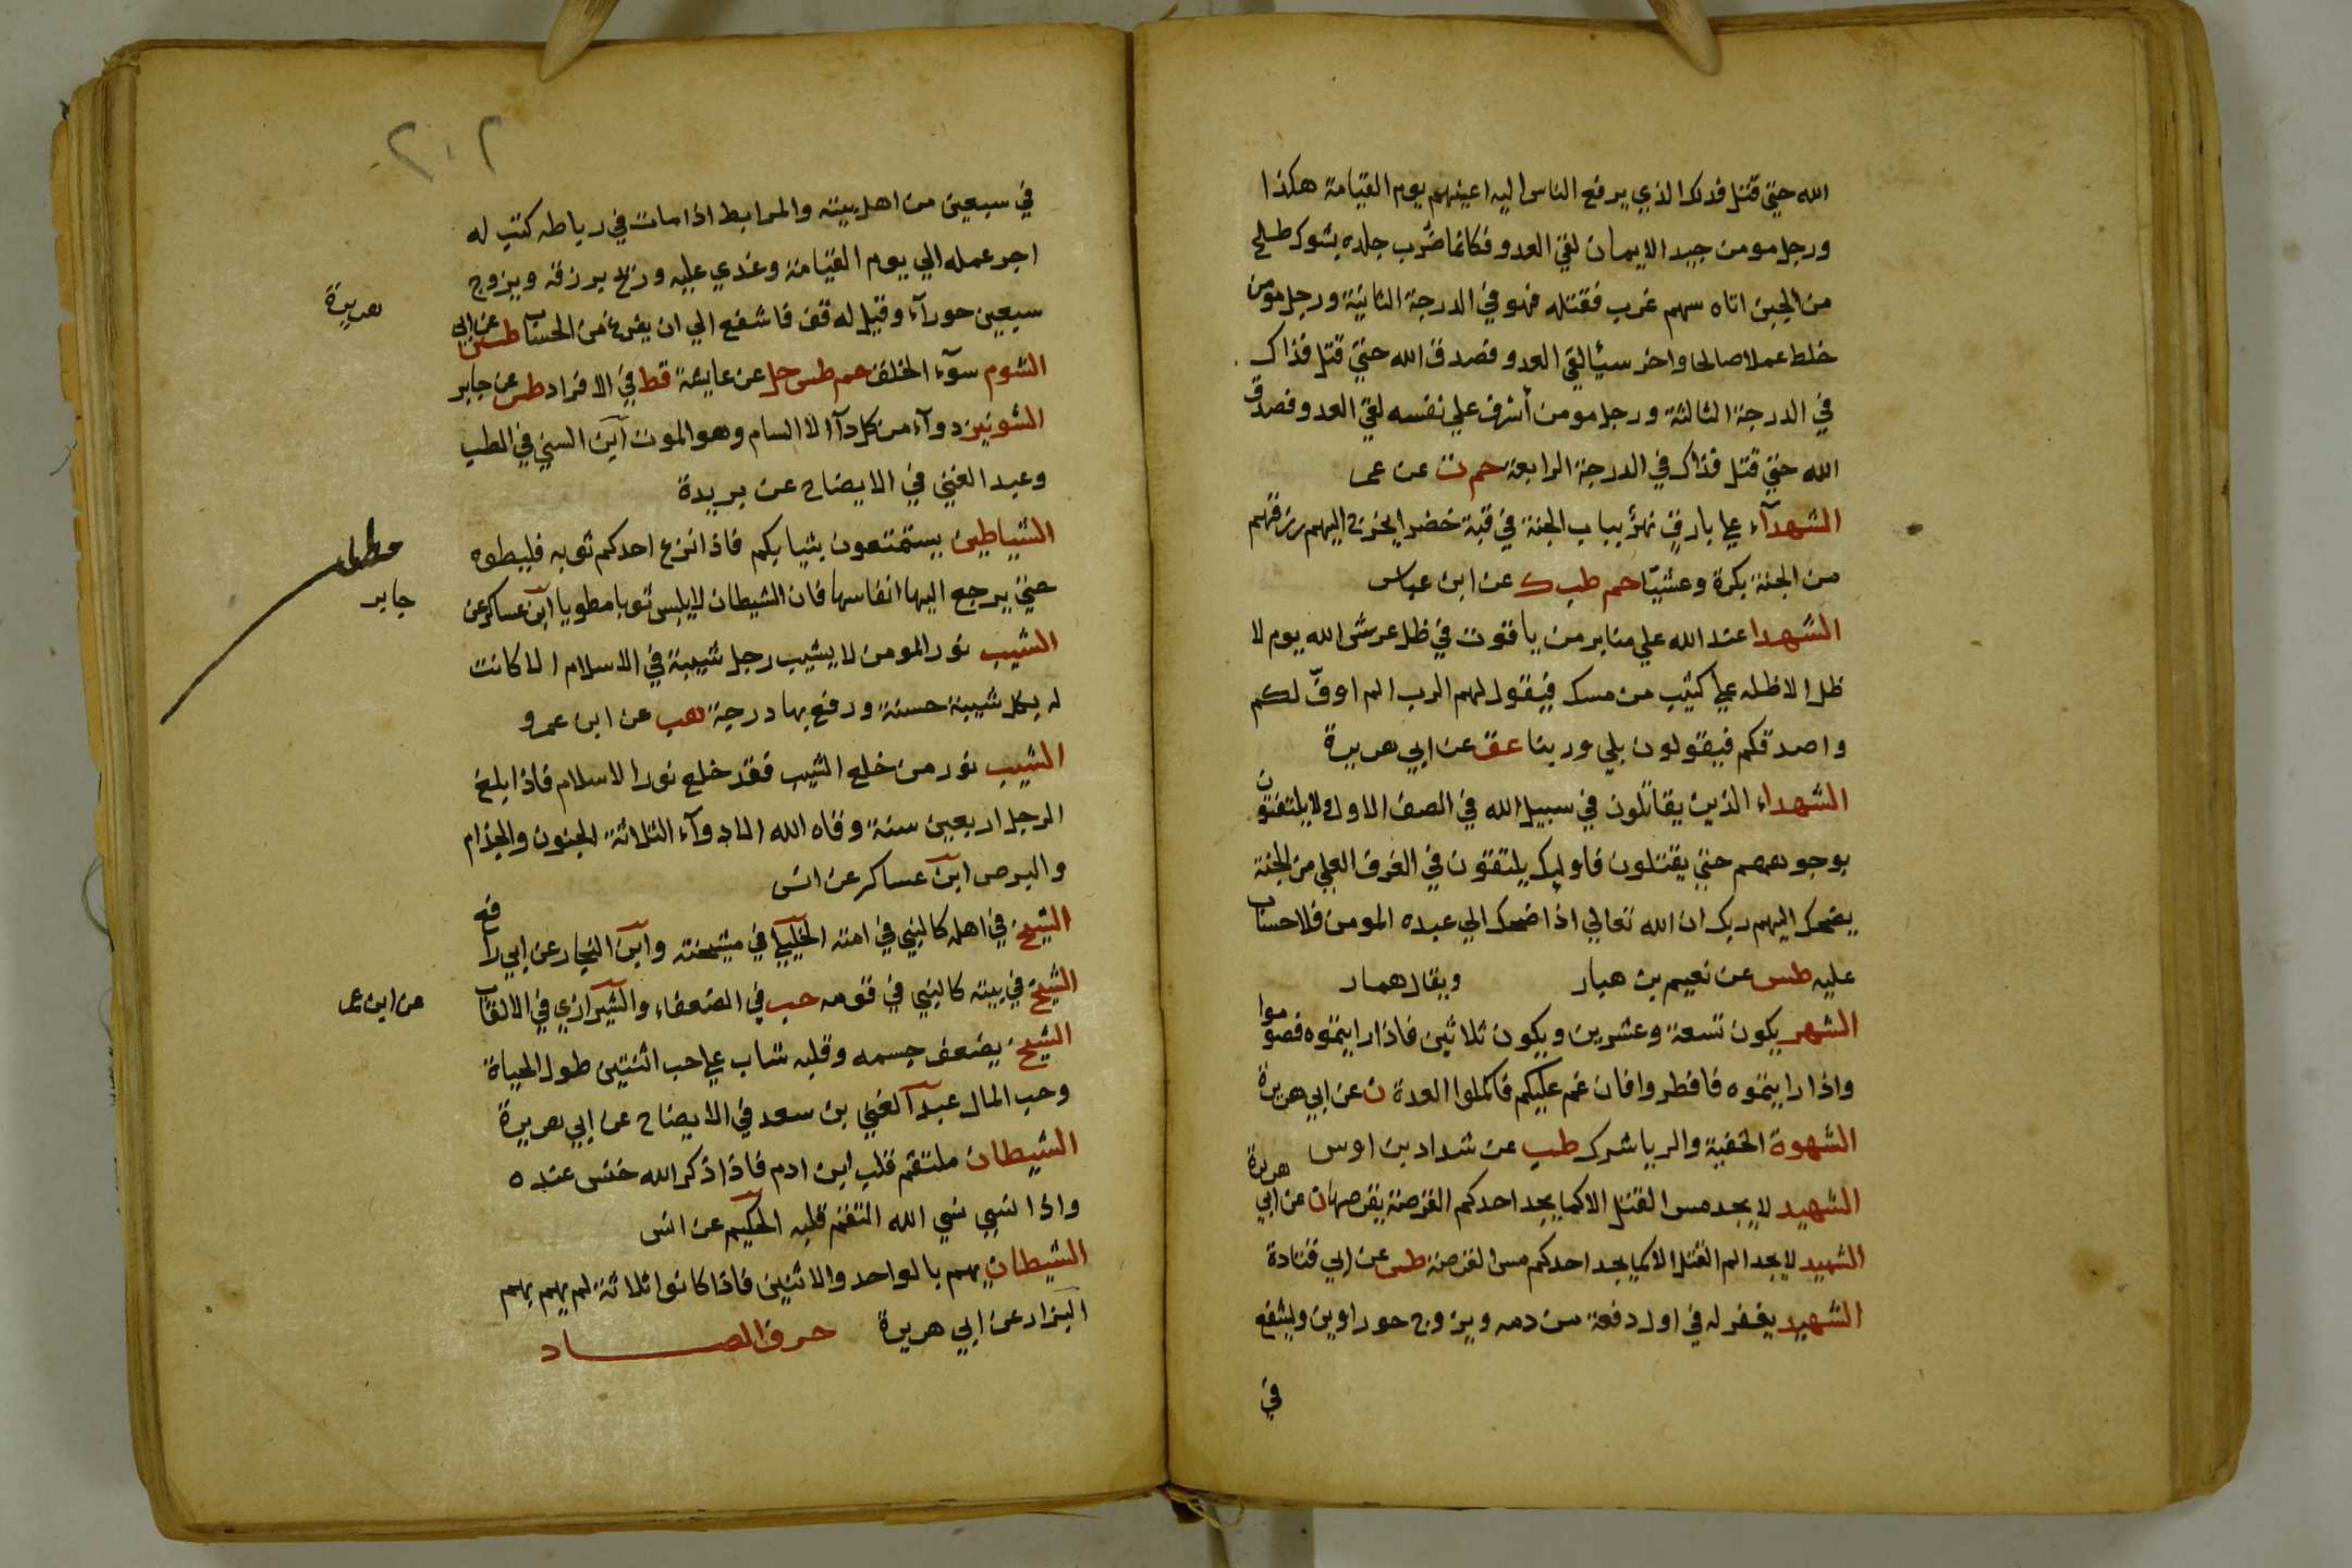 الله حتى قتل فذلك الذي يرفع الناس اليه اعينهم يوم القيامة هكذا
ورجل مومن جيد الايمان لقي العدو فكانما ضرب جلده بشوك طلح
من الجبن اتاه سهم غرب فقتله فهو في الدرجة الثانية ورجل مومن
خلط عملا صالحا واخر سيئا لقي العدو فصدق الله حتى قتل فذاك
في الدرجة الثالثة ورجل مومن أسرف علي نفسه لقي العدو فصدق
الله حتى قتل فذاك في الدرجة الرابعة حم ت عن عمر
الشهدآء علي بارق نهر بباب الجنة في قبة خضرا يخرج اليهم رزقهم
من الجنة بكرة وعشيّا حم طب ك عن ابن عباس
الشهدا عند الله علي منابر من ياقوت في ظل عرش الله يوم لا
ظل الا ظله علي كثيب من مسك فيقول لهم الرب الم اوفّ لكم
واصدقكم فيقولون بلي وربنا عق عن ابي هريرة
الشهداء الذين يقاتلون في سبيل الله في الصف الاول ولا يلتفتون
بوجوههم حتى يقتلون فاوليك يلتقون في الغرف العلي من الجنة
يضحك اليهم ربك ان الله تعالي اذا ضحك الي عبده المومن فلا حساب
عليه طس عن نعيم بن هبار ويقال همار
الشهر يكون تسعة وعشرين ويكون ثلاثين فاذا رايتموه فصوموا
واذا رايتموه فافطروا فان غم عليكم فاكملوا العدة ن عن ابي هريرة
الشهوة الخفية والريا شرك طب عن شداد بن اوس
الشهيد لا يجد مس القتل الا كما يجد احدكم القرصة يقرصها ن عن ابي هريرة
الشهيد لا يجد الم القتل الا كما يجد احدكم مس القرصة طس عن ابي قتادة
الشهيد يغفر له في اول دفعة من دمه ويزوج حوراوين ويشفع
في
٢٠٢
في سبعين من اهل بيته والمرابط اذا مات في رباطه كتب له
اجر عمله الي يوم القيامة وغدي عليه وريح برزقه ويزوج
سبعين حورآء وقيل له قف فاشفع الي ان يفرغ من الحساب طس عن ابي
هريرة
الشوم سوء الخلق حم طس حل عن عايشة قط في الافراد طس عن جابر
الشونيز دوآء من كل دآء الا السام وهو الموت ابن السني في الطب
وعبد الغني في الايضاح عن بريدة
الشياطين يستمتعون بثيابكم فاذا نزع احدكم ثوبه فليطوه
حتى يرجع اليها انفاسها فان الشيطان لا يلبس ثوبا مطويا ابن عساكر عن
جابر
الشيب نور المومن لا يشيب رجل شيبة في الاسلام الا كانت
له بكل شيبة حسنة ورفع بها درجة هب عن ابن عمرو
الشيب نور من خلع الشيب فقد خلع نور الاسلام فاذا بلغ
الرجل اربعين سنة وقاه الله الادوآء الثلاثة الجنون والجذام
والبرص ابن عساكر عن انس
الشيخ في اهله كالنبي في امته الخليلي في مشيخته وابن النجار عن ابي رافع
الشيخ في بيته كالنبي في قومه حب في الضعفاء والشيرازي في الالقاب
عن ابن عمر
الشيخ يضعف جسمه وقلبه شاب علي حب اثنتين طول الحياة
وحب المال عبد الغني بن سعد في الايضاح عن ابي هريرة
الشيطان ملتقم قلب ابن ادم فاذا ذكر الله خنس عنده
واذا نسي نسي الله التقم قلبه الحكيم عن انس
الشيطان يهم بالواحد والاثنين فاذا كانوا ثلاثة لم يهم بهم
البزار عن ابي هريرة حرف الصاد